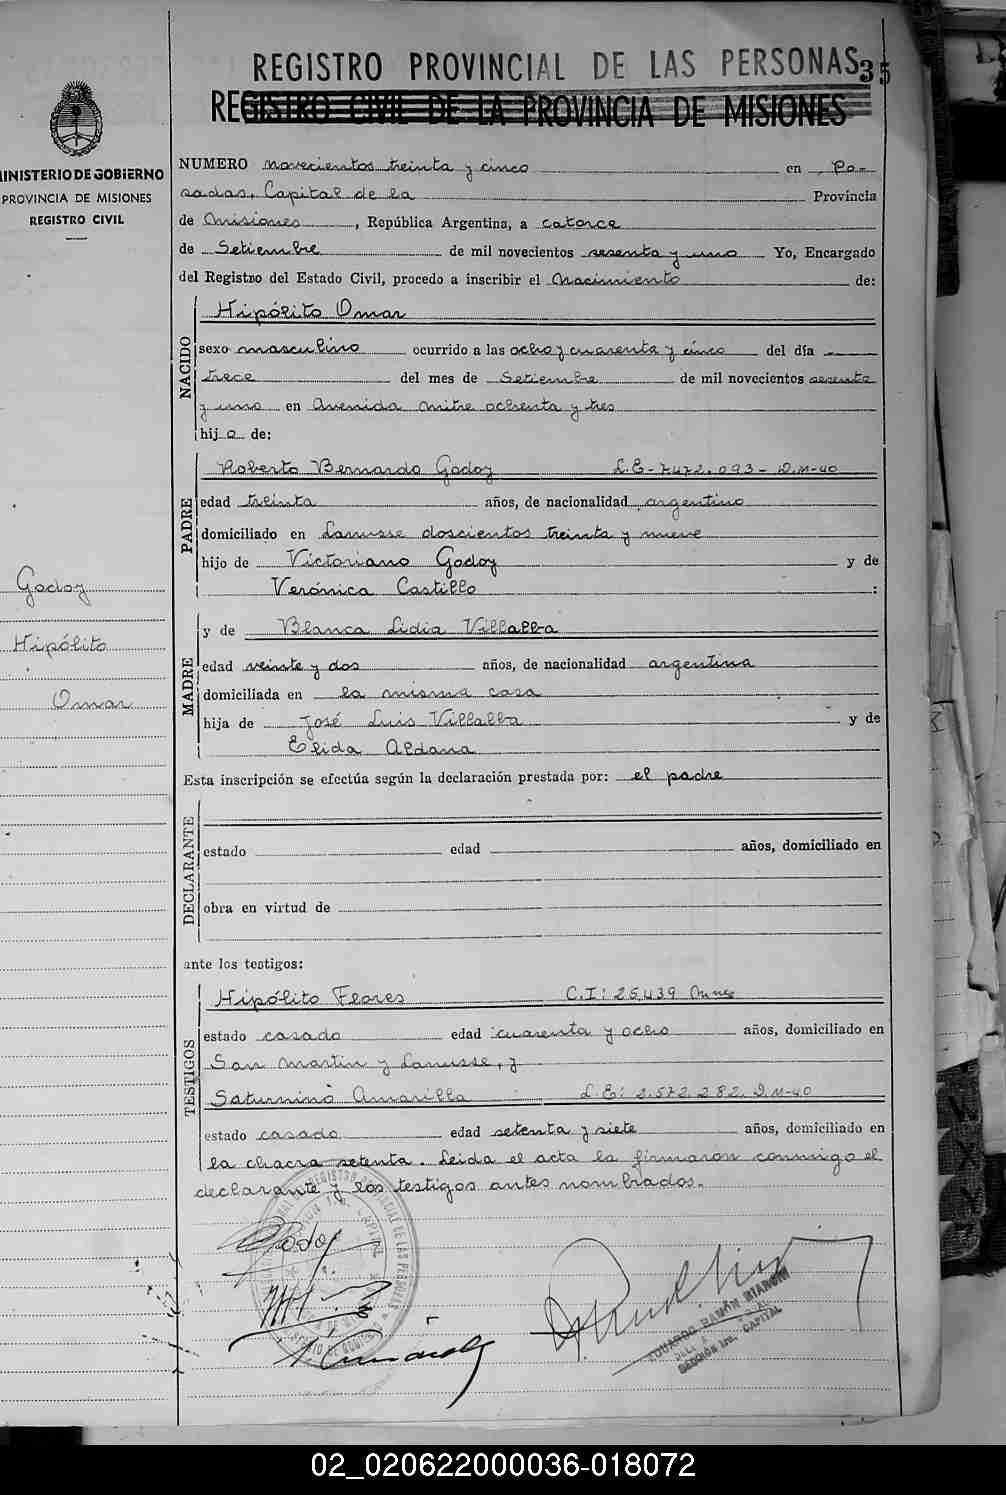 REGISTRO PROVINCIAL DE LAS PERSONAS 35
REGISTRO CIVIL DE LA PROVINCIA DE MISIONES
MINISTERIO DE GOBIERNO
PROVINCIA DE MISIONES
REGISTRO CIVIL
NUMERO novecientos treinta y cinco en Po-
sadas, Capital de la Provincia
de Misiones, República Argentina, a catorce
de Setiembre de mil novecientos sesenta y uno Yo, Encargado
del Registro del Estado Civil, procedo a inscribir el Nacimiento de:
NACIDO
Hipólito Omar
sexo masculino ocurrido a las ocho y cuarenta y cinco del día
trece del mes de Setiembre de mil novecientos sesenta
y uno en Avenida Mitre ochenta y tres
hijo de:
PADRE
Roberto Bernardo Godoy L.E-7472.093-D.M-40
edad treinta años, de nacionalidad argentino
domiciliado en Lanusse doscientos treinta y nueve
hijo de Victoriano Godoy y de
Verónica Castillo :
Godoy
Hipólito
Omar
MADRE
y de Blanca Lidia Villalba
edad veinte y dos años, de nacionalidad argentina
domiciliada en la misma casa
hija de José Luis Villalba y de
Elida Aldana
Esta inscripción se efectúa según la declaración prestada por: el padre
DECLARANTE
estado edad años, domiciliado en
obra en virtud de
ante los testigos:
TESTIGOS
Hipólito Flores C.I: 25439 Mnes
estado casado edad cuarenta y ocho años, domiciliado en
San Martin y Lanusse, y
Saturnino Amarilla L.E: 2.572.282. D.M-40
estado casado edad setenta y siete años, domiciliado en
la chacra setenta. Leida el acta la firmaron conmigo el
declarante y los testigos antes nombrados.
REGISTRO PROVINCIAL DE LAS PERSONAS
Godoy
EDUARDO RAMÓN MIARGH
SECCIÓN 1ra. CAPITAL
02_020622000036-018072